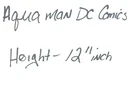 Aqua man DC Comics
Height - 12" inch